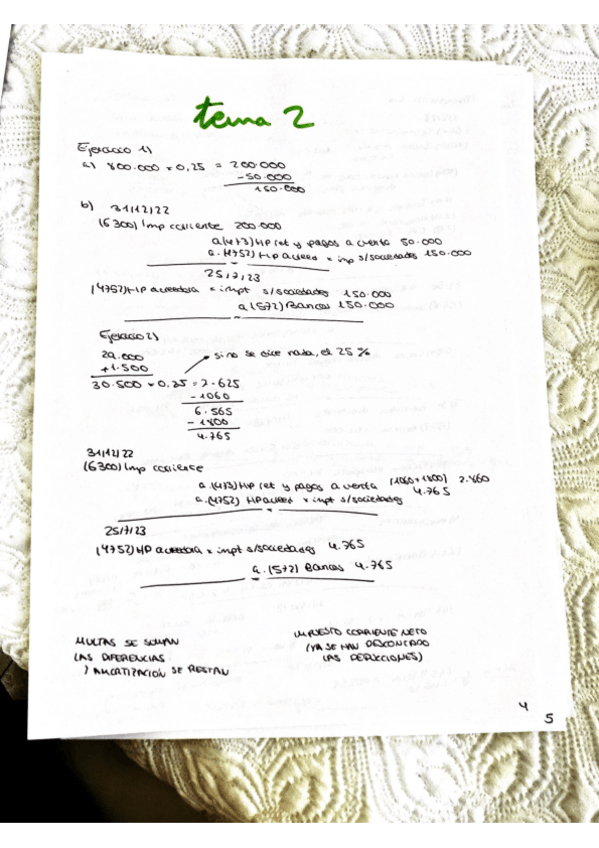 tema 2
Ejercicio 1)
a) 800.000 × 0,25 = 200.000
- 50.000
150.000
b) 31/12/22
(6300) Imp corriente 200.000
a (473) HP ret y pagos a cuenta 50.000
a. (4752) HP acreed × imp s/sociedades 150.000
25/7/23
(4752) HP acreedora × impt s/sociedades 150.000
a (572) Bancos 150.000
Ejercicio 2)
29.000
+ 1.500
si no se dice nada, el 25 %
30.500 × 0,25 = 7.625
- 1060
6.565
- 1800
4.765
31/12/22
(6300) Imp corriente
a (473) HP ret y pagos a cuenta (1060+1800) 2.860
a. (4752) HP acreed × impt s/sociedades 4.765
25/7/23
(4752) HP acreedora × impt s/sociedades 4.765
a. (572) Bancos 4.765
MULTAS SE SUMAN
LAS DIFERENCIAS
AMORTIZACIÓN SE RESTAN
IMPUESTO CORRIENTE NETO
(YA SE HAN DESCONTADO
LAS DEDUCCIONES)
4
5